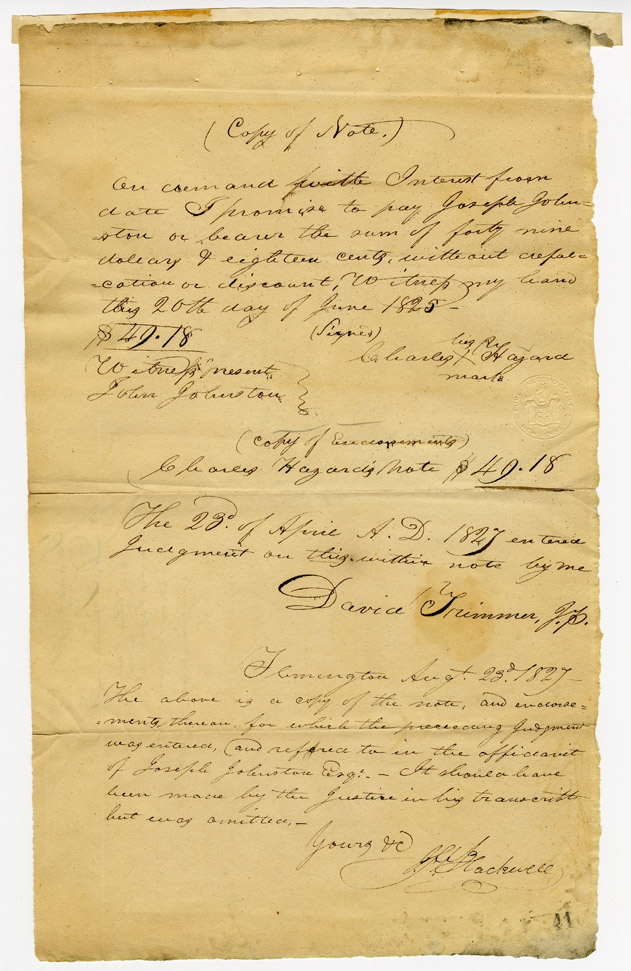 (Copy of Note.)
On demand with Interest from
date I promise to pay Joseph John-
-ston or bearer the sum of forty nine
dollars & eighteen cents, without defal-
-cation or discount, Witness my hand
this 20th day of June 1825-
$49.18 (Signed) his
Charles X Hazard
mark
Witness present
John Johnston
(copy of Endorsements)
Charles Hazard's Note $49.18
The 23d. of April A. D. 1827 entered
Judgment on this within note by me
David Trimmer, J.P.
Flemington Augt. 23d. 1827-
The above is a copy of the note, and endorse-
-ments, thereon, for which the preceeding Judgment
was entered, and refered to in the affidavit
of Joseph Johnston Esqr. - It should have
been made by the Justice in his transcript
but was omitted,-
Yours &c
Blackwell
41